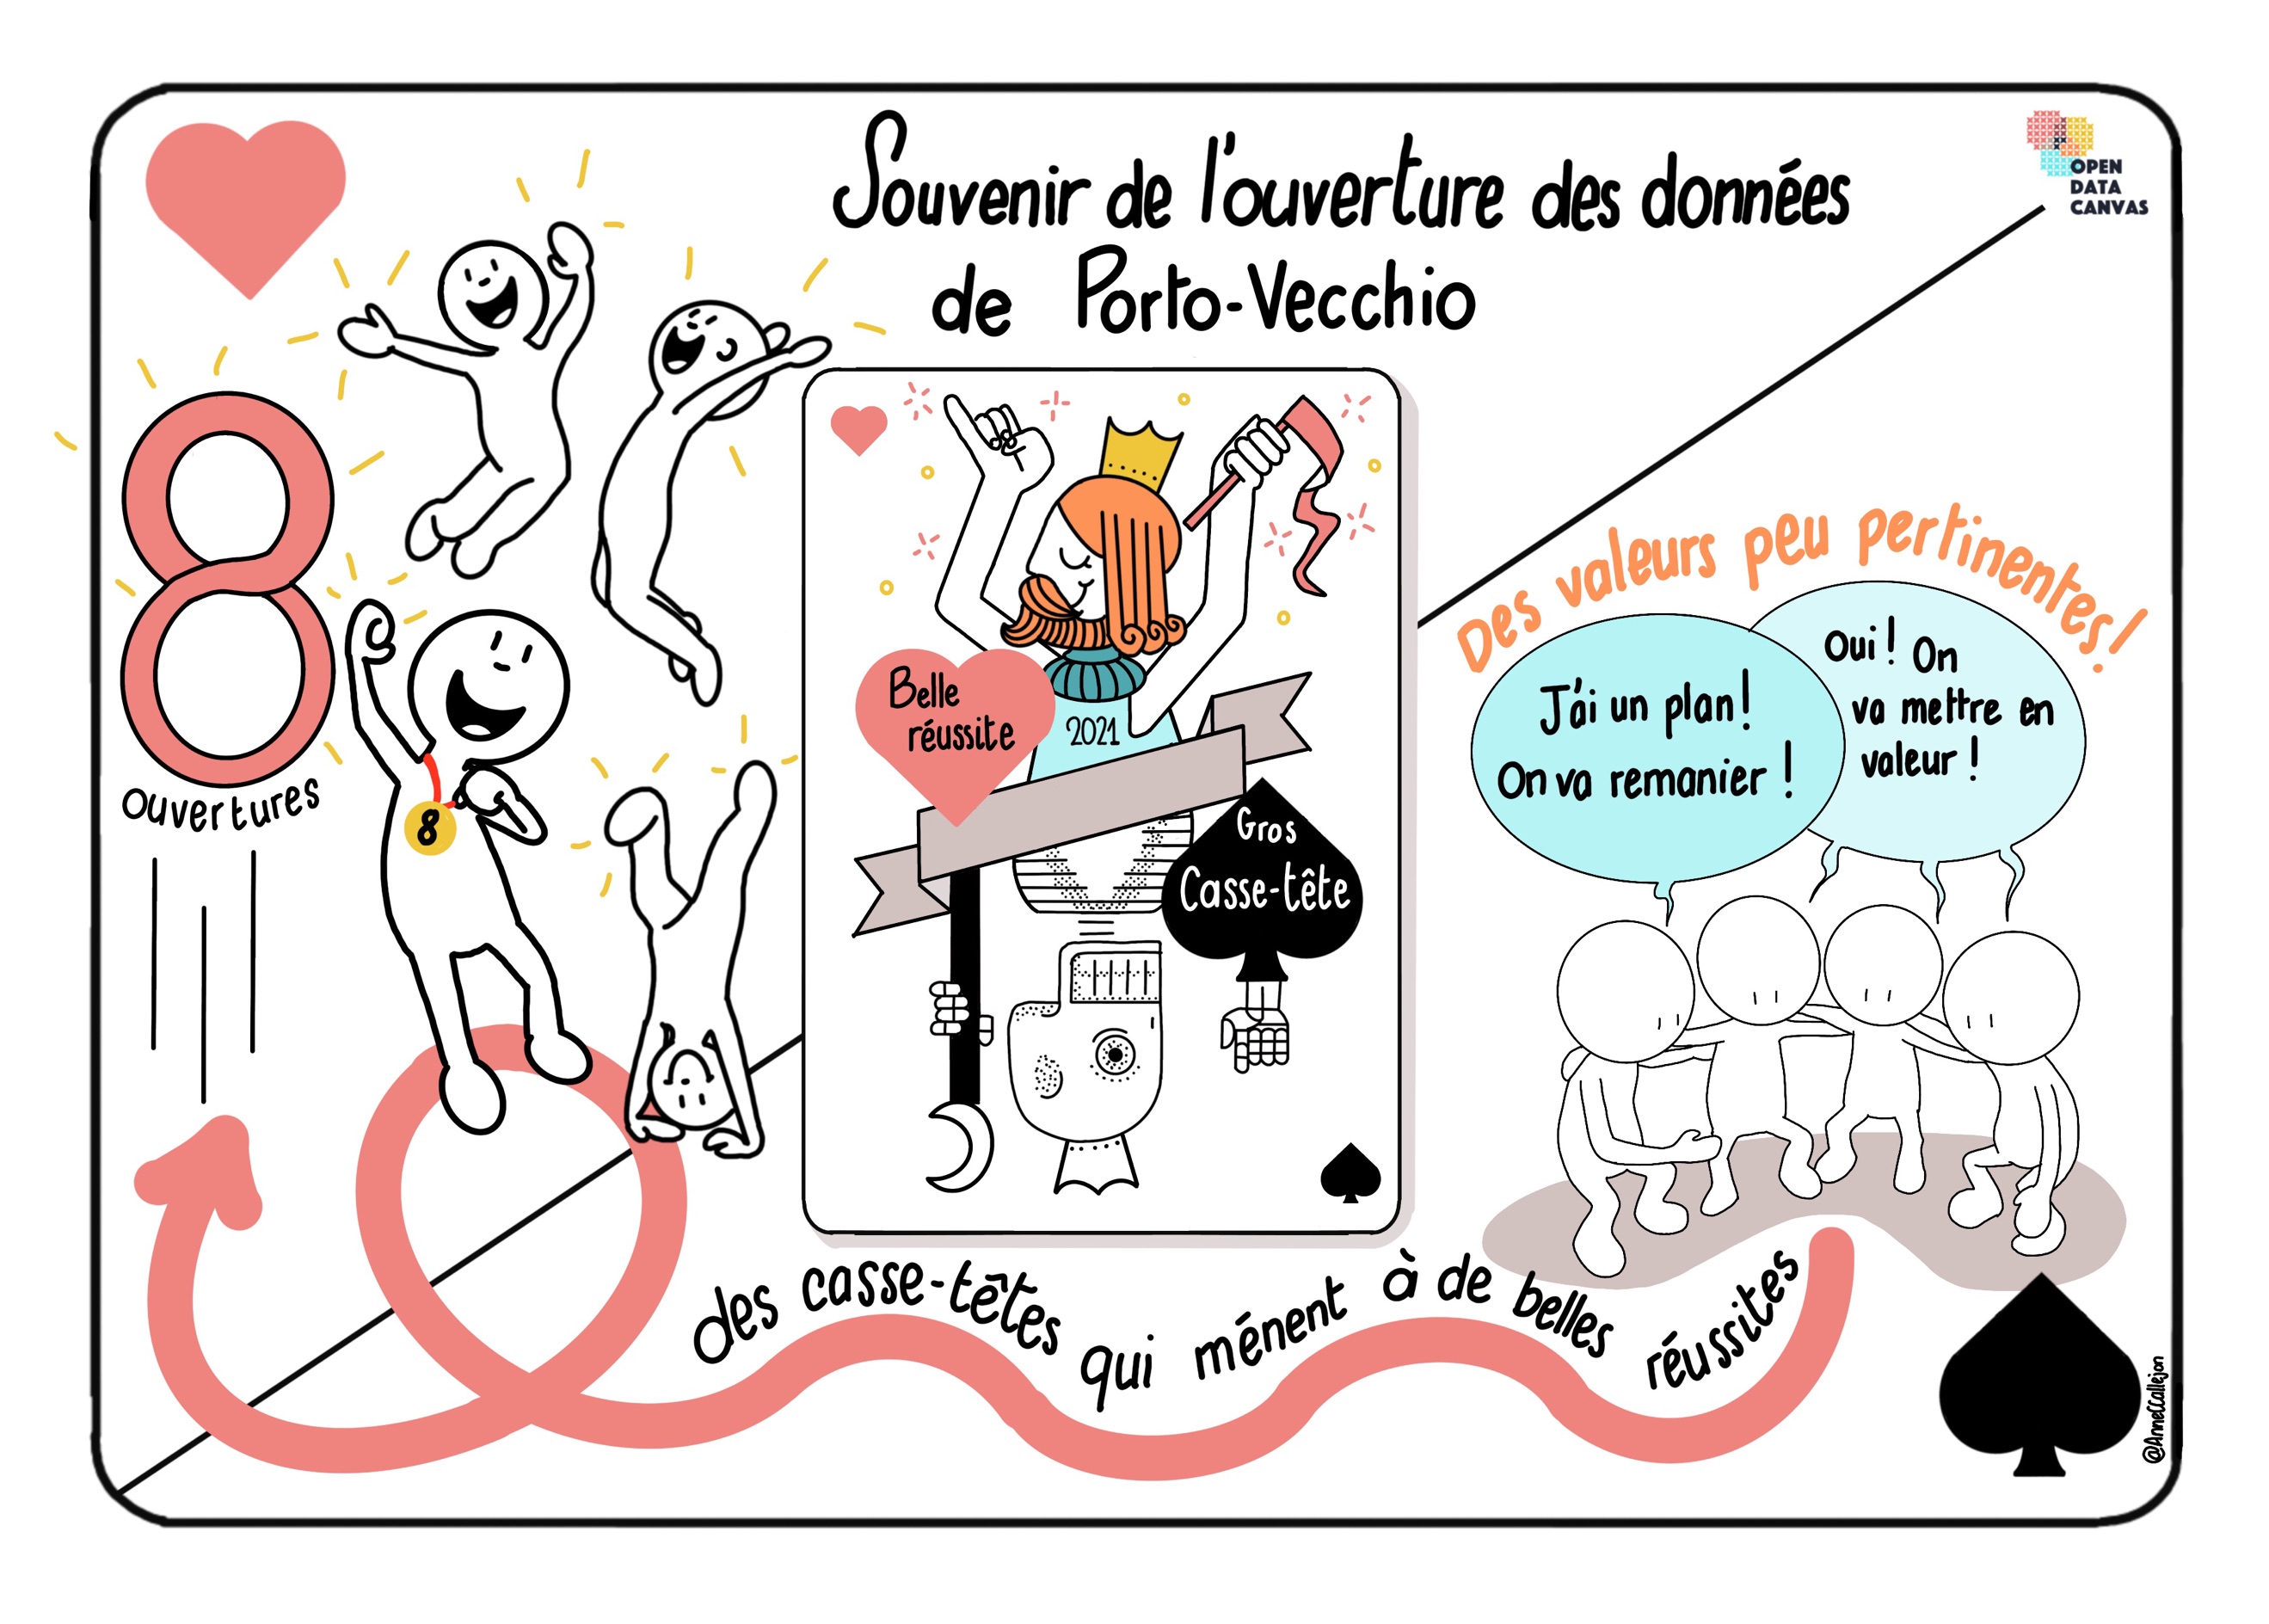 Souvenir de l'ouverture des données
de Porto-Vecchio
OPEN
DATA
CANVAS
8
ouvertures
8
Belle
réussite
2021
Gros
Casse-tête
Des valeurs peu pertinentes!
J'ai un plan!
On va remanier !
Oui! On
va mettre en
valeur !
des casse-têtes qui ménent à de belles réussites
@AnneCCallejon